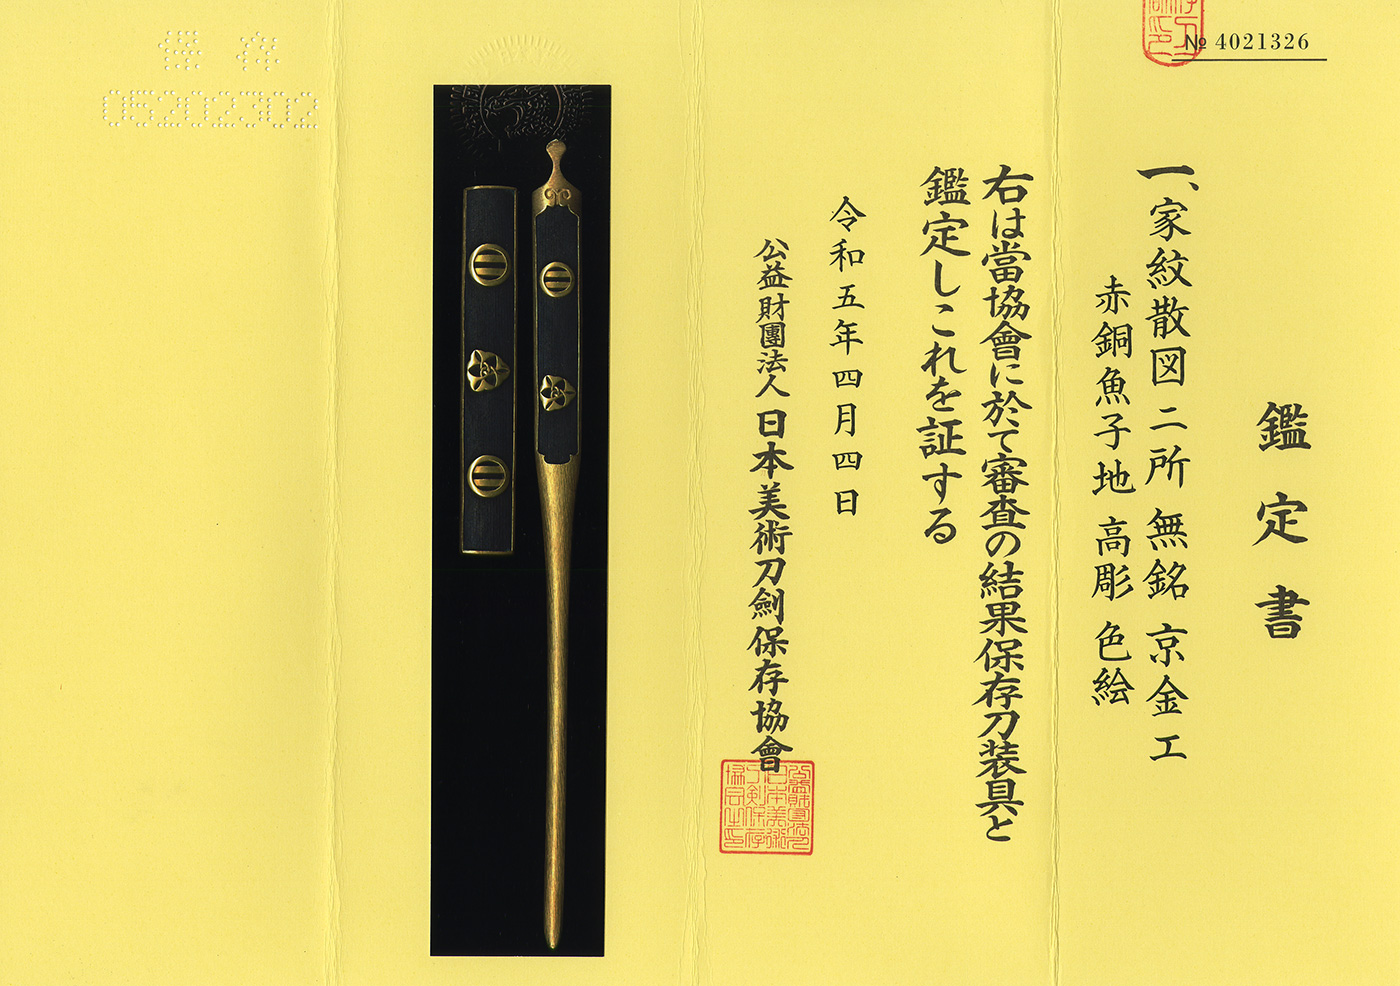 № 4021326
鑑定書
一、家紋散図二所 無銘 京金工
赤銅魚子地 高彫 色絵
右は當協會に於て審査の結果保存刀装具と
鑑定しこれを証する
令和五年四月四日
公益財團法人 日本美術刀劍保存協會
保存
05202302